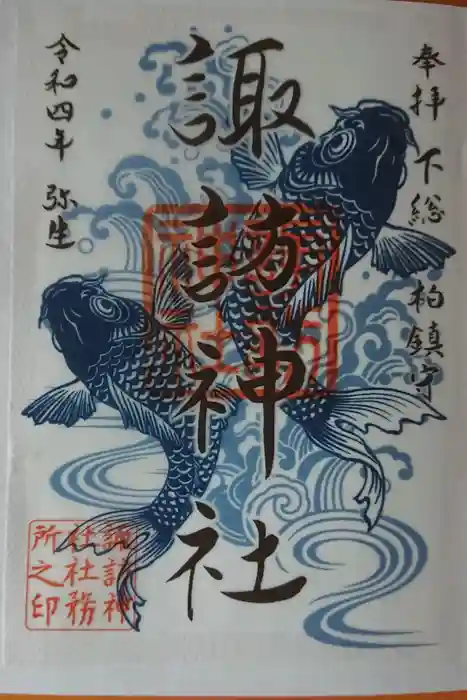 奉拝 下総 柏鎮守
諏訪神社
令和四年 弥生
諏訪神
社社務
所之印